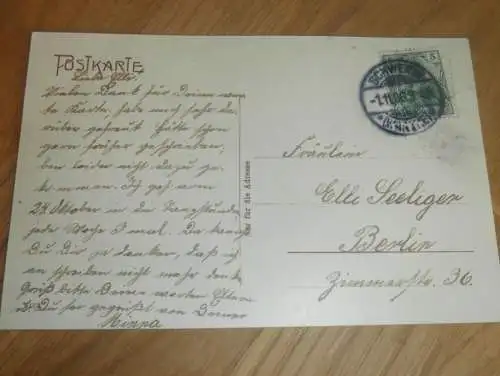 POSTKARTE
Liebe Elli!
Vielen Dank für Deine werte
Karte, habe mich sehr darüber
gefreut. Hätte schon
gern früher geschrieben,
bin leider nicht dazu gekommen.
Ich geh vom
24 Oktober in die Tanzstunde,
jede Woche 3 mal. Da kannst
Du Dir ja denken, daß ich
an schreiben nicht mehr denke.
Grüß bitte Deine werten Eltern
u. Du sei gegrüßt von Deiner
Minna
Nur für die Adresse
SCHWE
5
1.11.08
Fräulein
Elli Seeliger
Berlin
Zimmerstr 36.